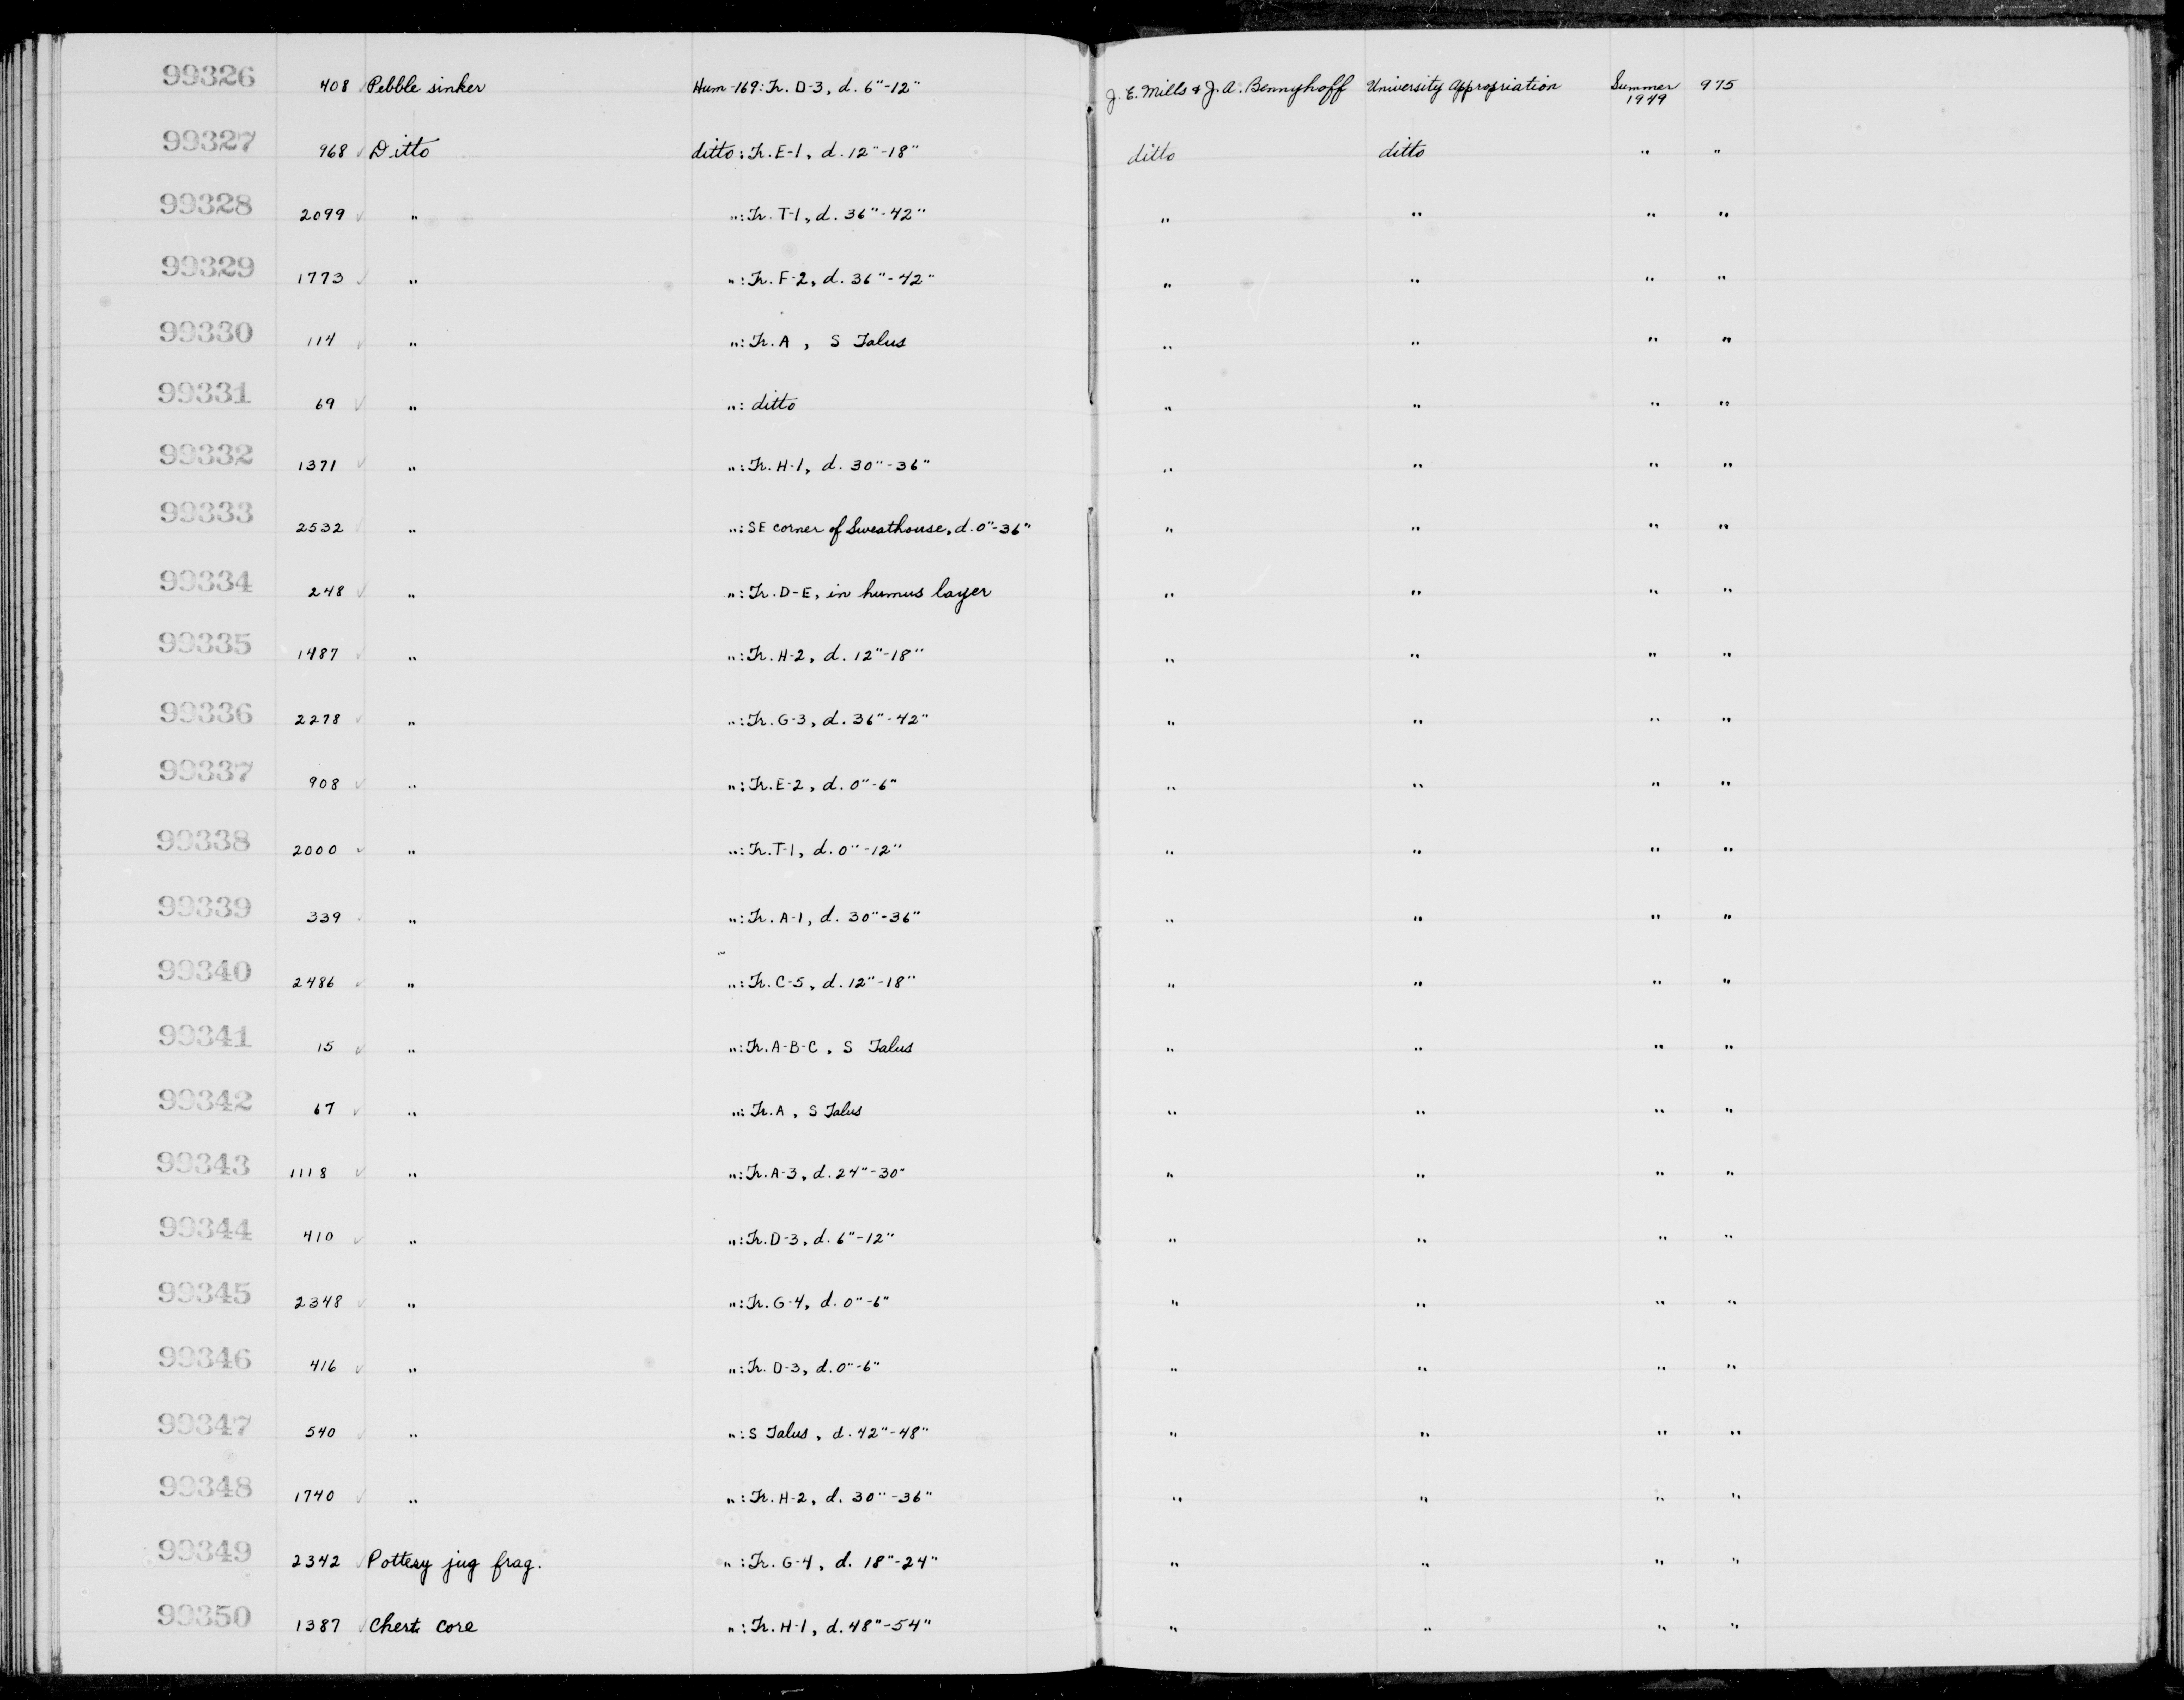 99326 408 Pebble sinker Hum-169: Tr. D-3, d. 6"-12" J. E. Mills & J. A. Bennyhoff University Appropriation Summer 1949 975
99327 968 Ditto ditto: Tr. E-1, d. 12"-18" ditto ditto " "
99328 2099 " ": Tr. T-1, d. 36"-42" " " " "
99329 1773 " ": Tr. F-2, d. 36"-42" " " " "
99330 114 " ": Tr. A, S Talus " " " "
99331 69 " ": ditto " " " "
99332 1371 " ": Tr. H-1, d. 30"-36" " " " "
99333 2532 " ": SE corner of Sweathouse, d. 0"-36" " " " "
99334 248 " ": Tr. D-E, in humus layer " " " "
99335 1487 " ": Tr. H-2, d. 12"-18" " " " "
99336 2278 " ": Tr. G-3, d. 36"-42" " " " "
99337 908 " ": Tr. E-2, d. 0"-6" " " " "
99338 2000 " ": Tr. T-1, d. 0"-12" " " " "
99339 339 " ": Tr. A-1, d. 30"-36" " " " "
99340 2486 " ": Tr. C-5, d. 12"-18" " " " "
99341 15 " ": Tr. A-B-C, S Talus " " " "
99342 67 " ": Tr. A, S Talus " " " "
99343 1118 " ": Tr. A-3, d. 24"-30" " " " "
99344 410 " ": Tr. D-3, d. 6"-12" " " " "
99345 2348 " ": Tr. G-4, d. 0"-6" " " " "
99346 416 " ": Tr. D-3, d. 0"-6" " " " "
99347 540 " ": S Talus, d. 42"-48" " " " "
99348 1740 " ": Tr. H-2, d. 30"-36" " " " "
99349 2342 Pottery jug frag. ": Tr. G-4, d. 18"-24" " " " "
99350 1387 Chert core ": Tr. H-1, d. 48"-54" " " " "